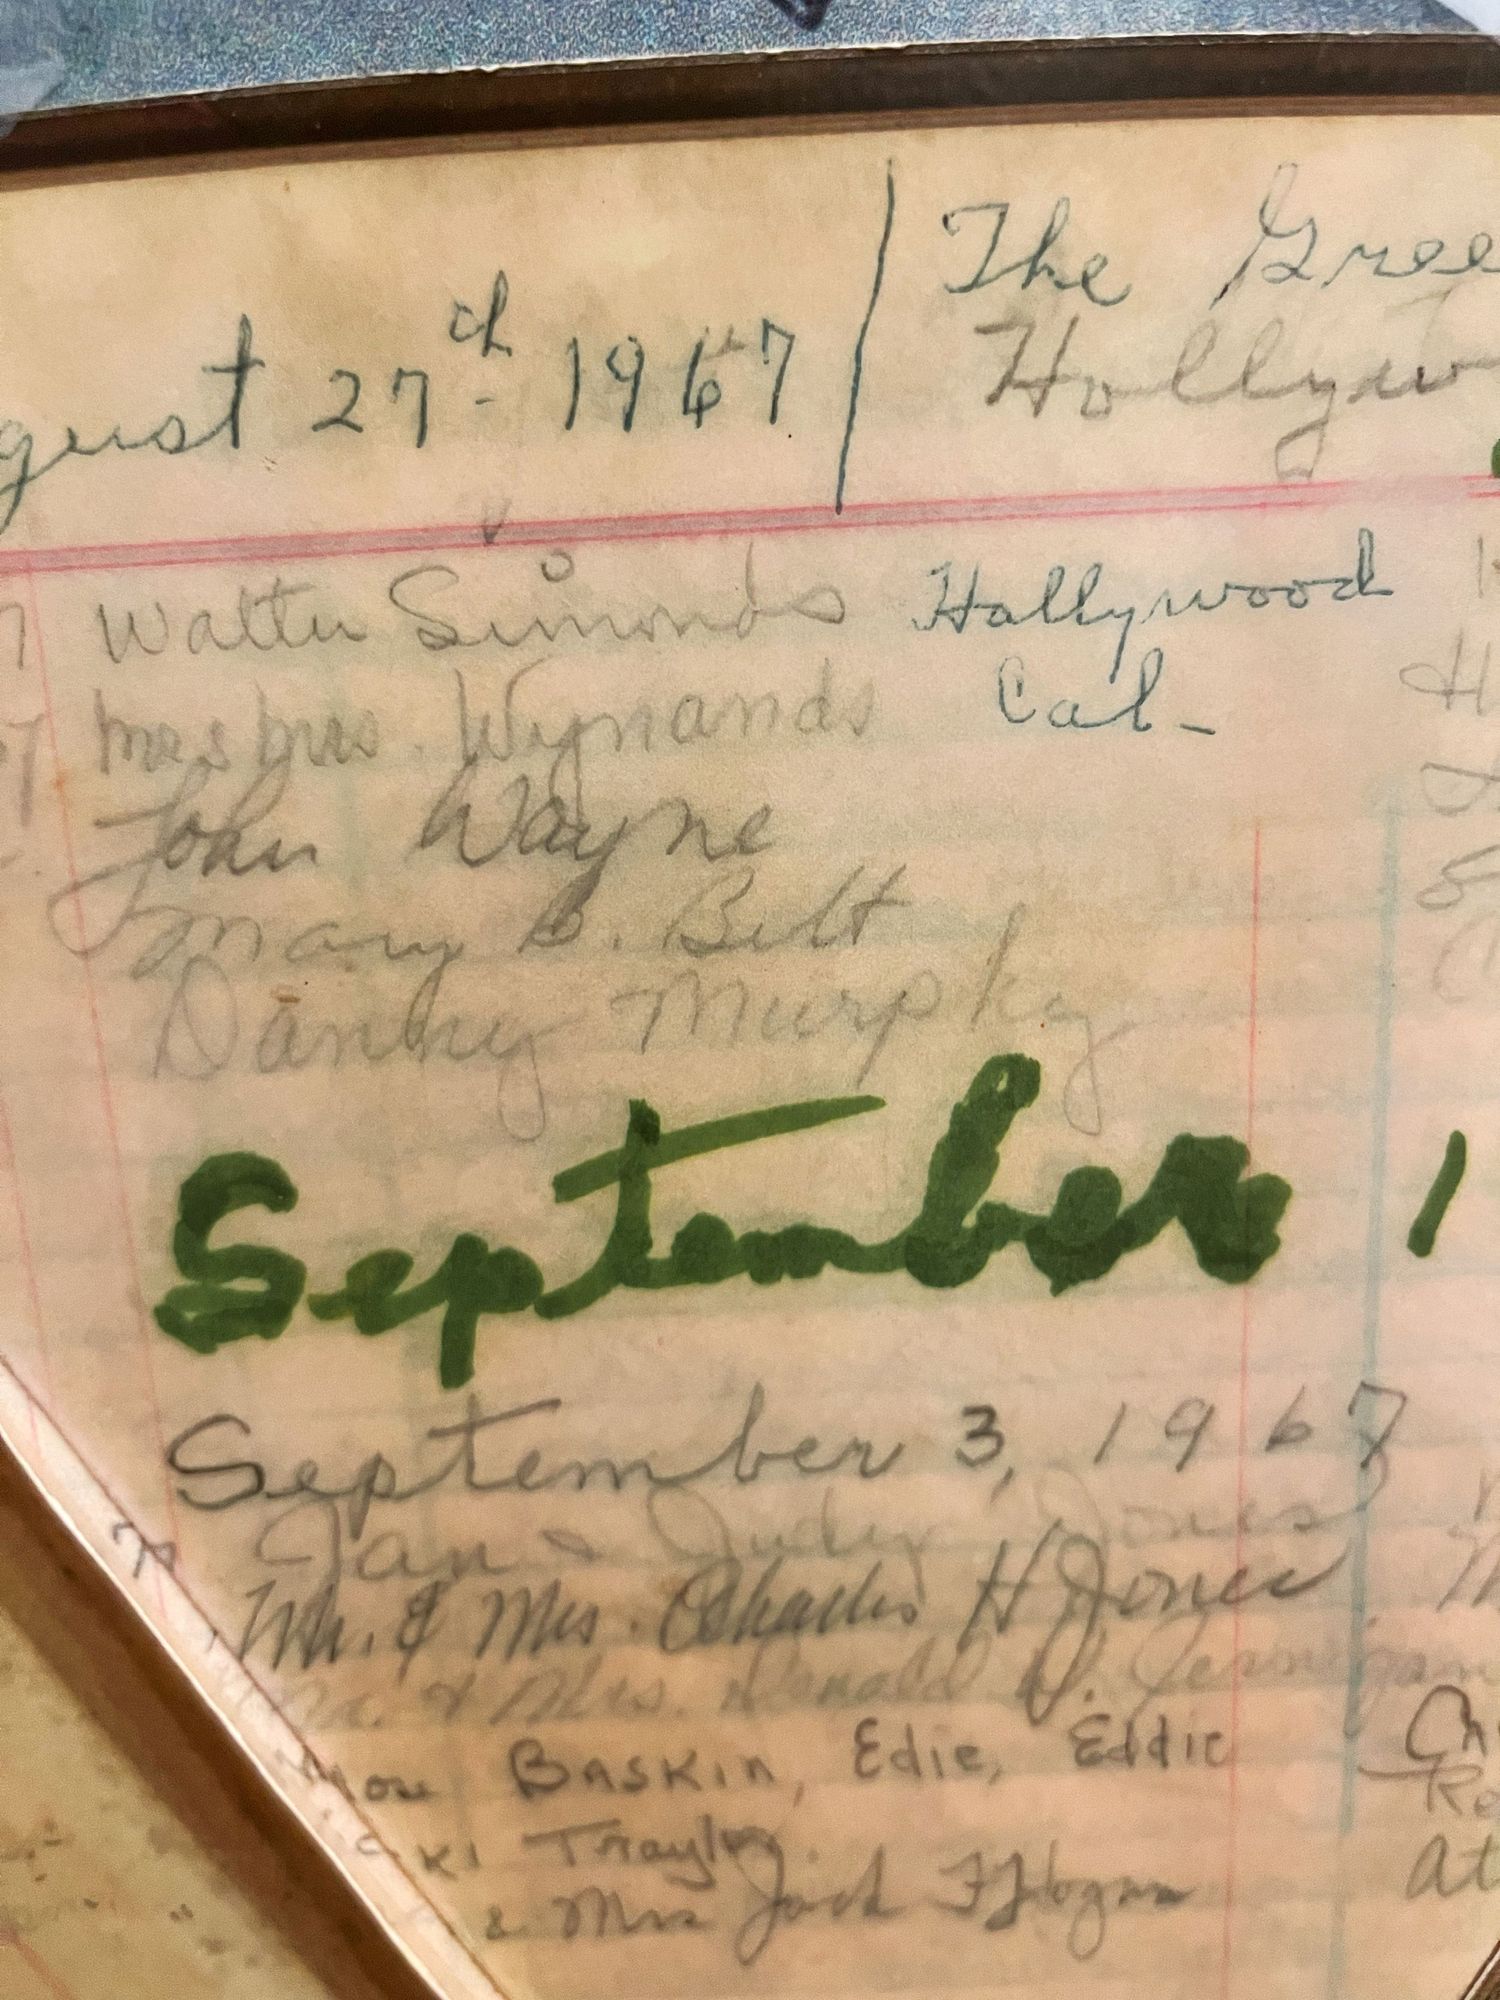 The Gree
gust 27th - 1967
Hollyw
Walter Simonds Hollywood
Mr & Mrs. Wynands Cal-
John Wayne
Mary B. Belt
Danny Murphy
September 1
September 3, 1967
Jan & Judy Jones
Mr. & Mrs. Charles H Jones
& Mrs. Donald D. Jernigan
Baskin, Edie, Eddie
Traylor
& Mrs Jack